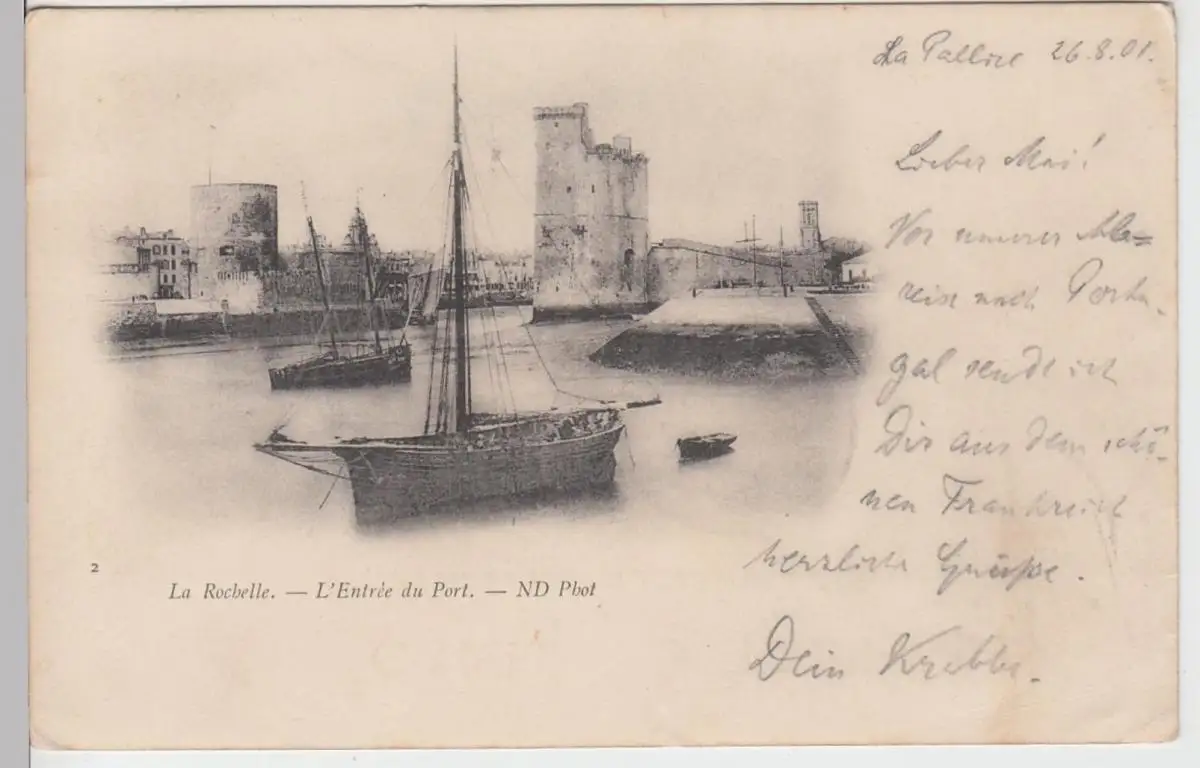 La Pallice 26.8.01.
Lieber Mai!
Vor unserer Ab=
reise nach Portu
gal sende ich
Dir aus dem schö-
nen Frankreich
herzliche Grüße.
Dein
2
La Rochelle. — L'Entrée du Port. — ND Phot